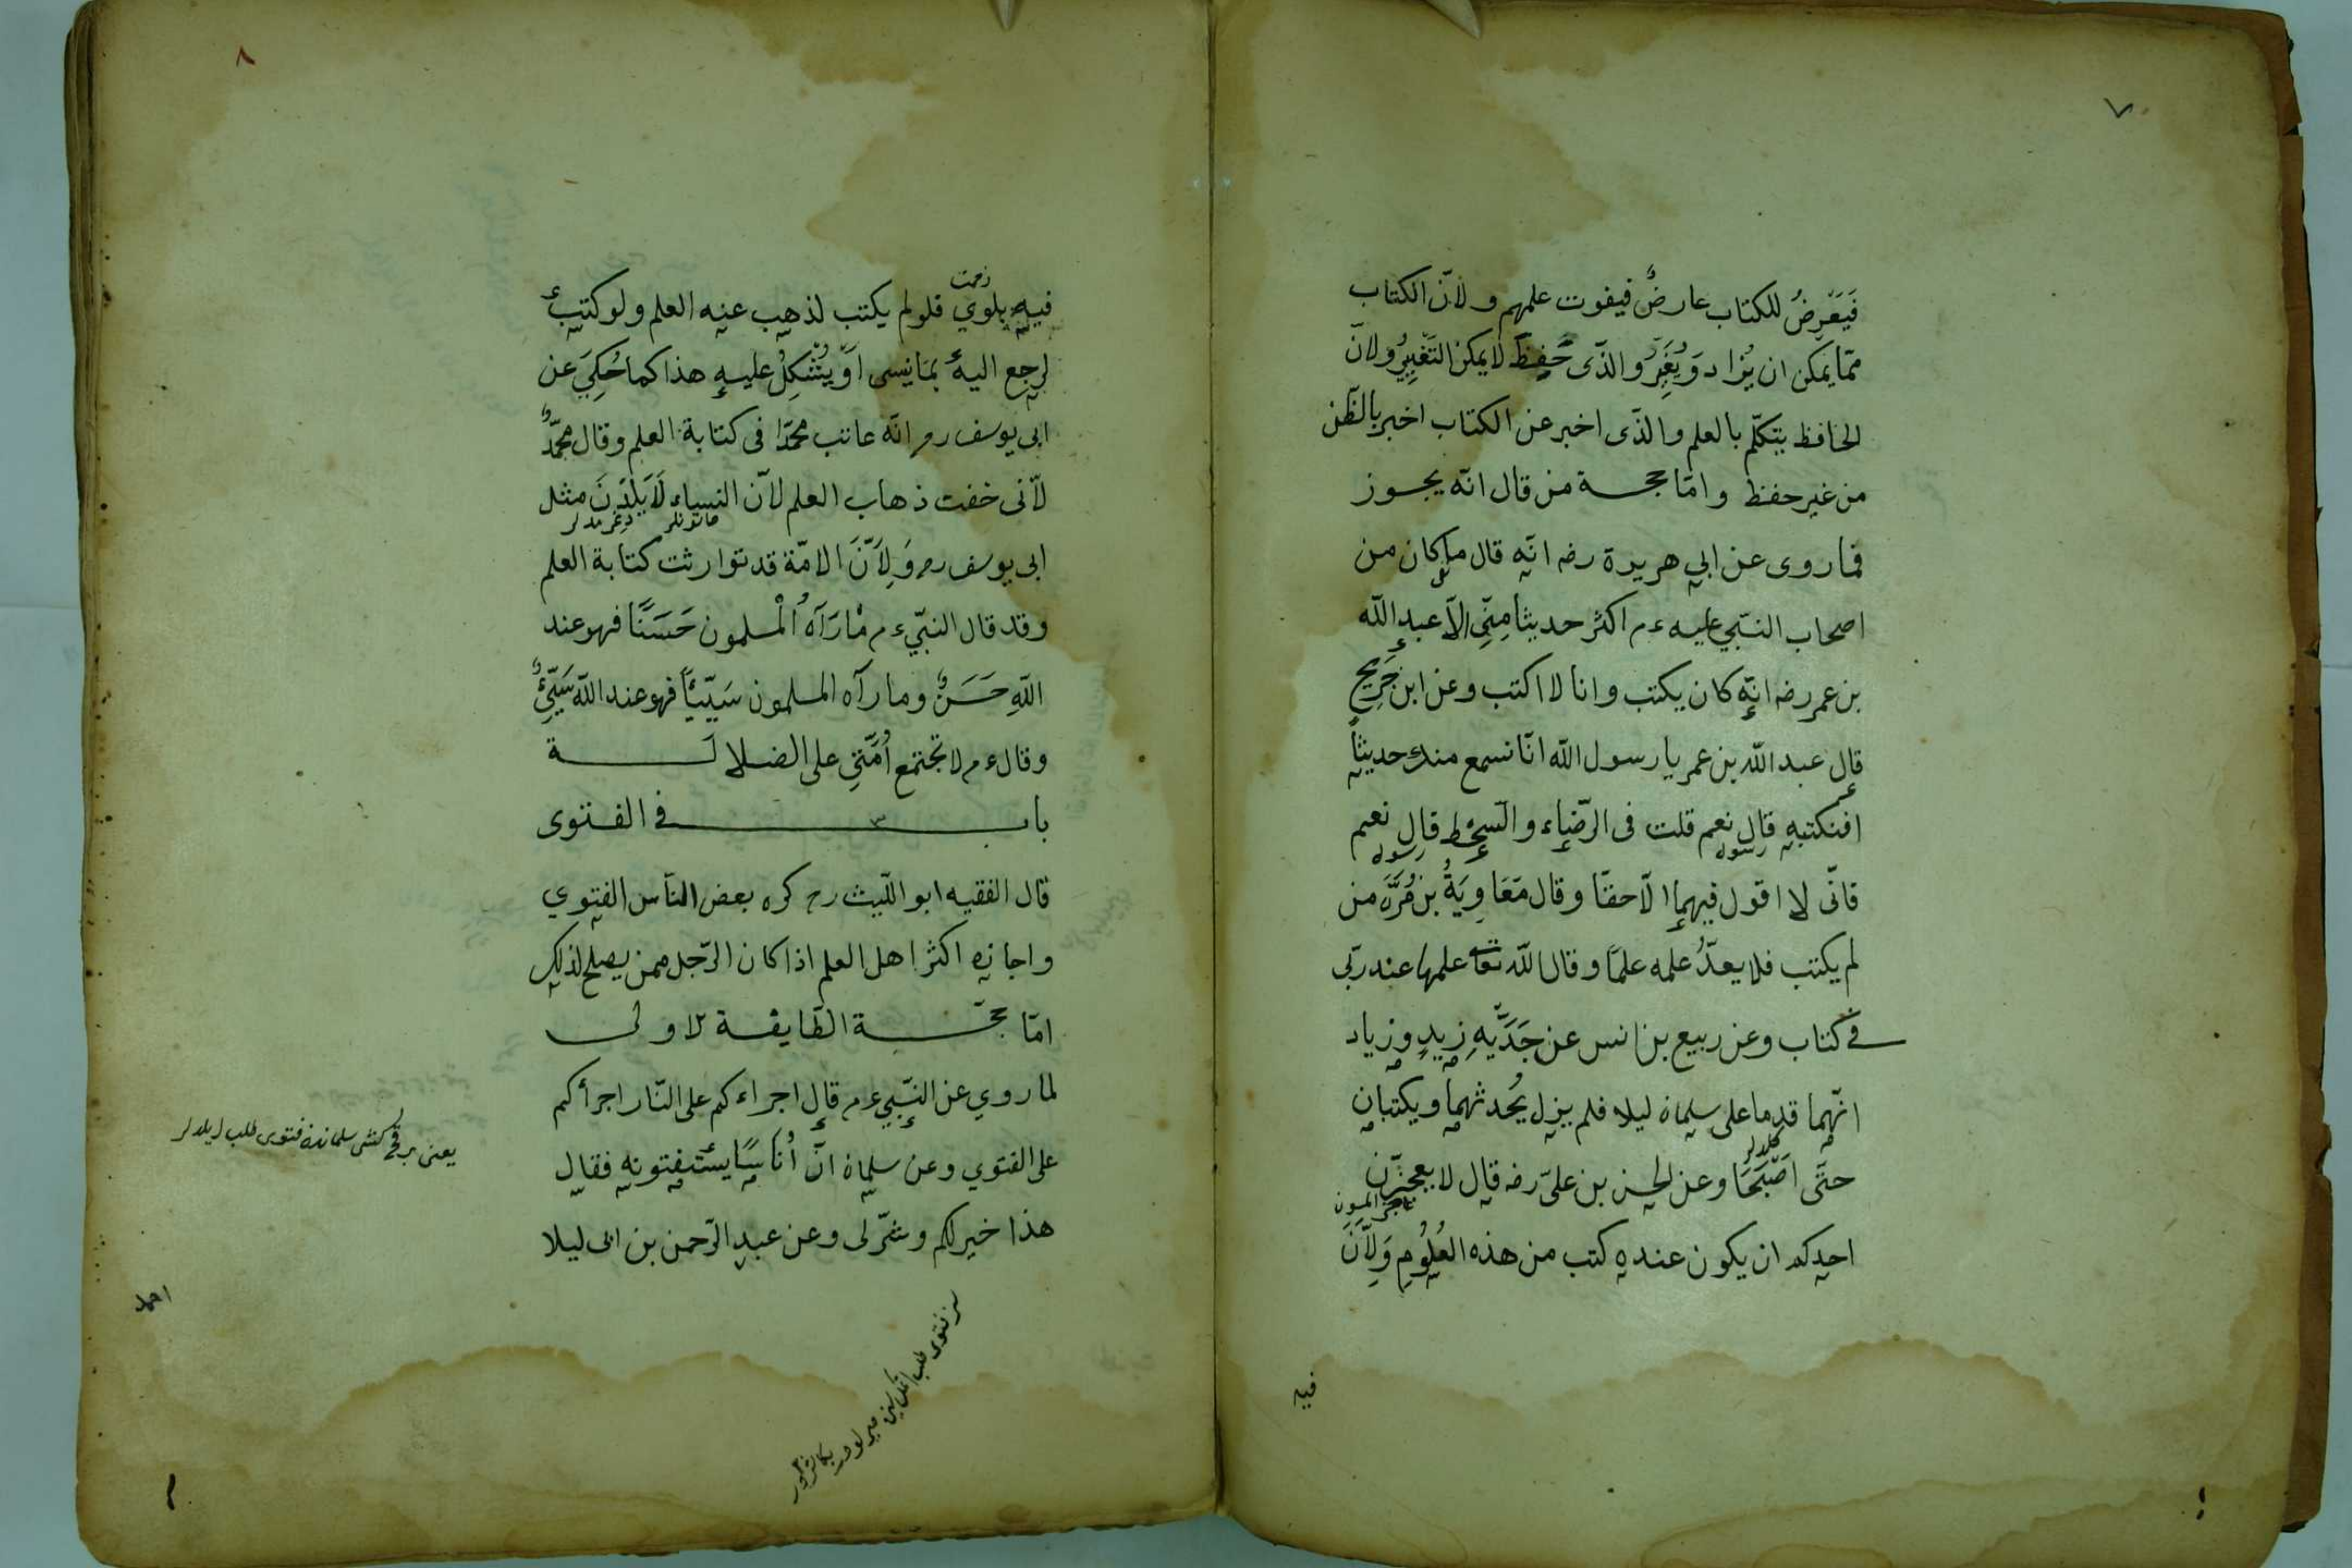 ٧
فَيَعْرِضُ للكتاب عارضٌ فيفوت علمهم ولانّ الكتاب
ممّا يمكن ان يُزاد وَيُغَيَّرُ والذّى حُفِظَ لا يمكن التَغْيِيرُ ولانّ
الحافظ يتكلّم بالعلم والذّى اخبر عن الكتاب اخبر بالظّن
من غير حفظ وامّا حجة من قال انّه يجوز
فما روى عن ابى هريرة رضه انّه قال ما كان من
اصحاب النّبي عليه ءم اكثر حديثا مِنِّى الاّ عبد الله
بن عمر رضه انّه كان يكتب وانا لا اكتب وعن ابن جَرِيحٍ
قال عبد الله بن عمر يا رسول الله انّا نسمع منك حديثاً
افنكتبه قال نعم قلت فى الرّضاء والسّخط قال نعم
رسول رسول
فانّى لا اقول فيهما الاّ حقّا وقال مَعَاوِيَةُ بن قُرَّةَ من
لم يكتب فلا يعدُّ علمه علمًا وقال الله تعا علمها عند ربّى
فى كتاب وعن ربيع بن انس عن جَدَّيْهِ زيدٍ وزياد
انّهما قدما على سليمان ليلا فلم يزل يُحدثهما ويكتبان
كلدلر
حتّى اَصْبَحَا وعن الحسن بن علىّ رضه قال لا يعجزنّ
عاجز المسون
احدكم ان يكون عنده كتب من هذه العُلُومِ وَلِاَنَّ
فيه
٨
زحمت
فيه بلوي فلو لم يكتب لذهب عنه العلم ولو كتبهُ
لرجع اليهُ بما ينسى اَوْ يُشْكِلُ عليه هذا كما حُكِيَ عن
ابى يوسف رم انّه عاتب محمّدًا فى كتابة العلم وقال محمّدٌ
لأنّى خفت ذهاب العلم لانّ النساء لَا يَلِدْنَ مثل
خاتونلر دغرمدلر
ابى يوسف رم وَلِاَنَّ الامّة قد توارثت كتابة العلم
وقد قال النبّى ءم مَا رَآهُ الْمسلمون حَسَنًا فهو عند
اللهِ حَسَنٌ وما رآه المسلمون سَيّئِاً فهو عند الله سَيّئٌِ
وقال ءم لا تجتمع اُمَّتِى على الضلالة
باب ٣ فى الفتوى
قال الفقيه ابو اللّيث رح كره بعض النّاس الفتوي
واجازه اكثر اهل العلم اذا كان الرّجل ممن يصلح لذلك
امّا حجّة الطّايفة الاولى
لما روي عن النّبي ءم قال اجراءكم على النّار اجرأكم
على الفتوي وعن سليمان انّ اُنَاسًا يستفتونه فقال
هذا خير لكم وشرّ لى وعن عبد الرّحمن بن ابى ليلا
يعنى برقچ كشى سلماندن فتوى طلب ايلدلر
احمد